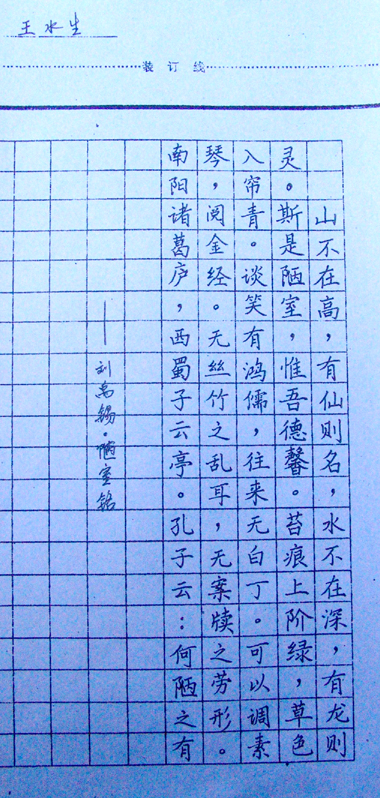 王水生
装订线
山不在高，有仙则名，水不在深，有龙则
灵。斯是陋室，惟吾德馨。苔痕上阶绿，草色
入帘青。谈笑有鸿儒，往来无白丁。可以调素
琴，阅金经。无丝竹之乱耳，无案牍之劳形。
南阳诸葛庐，西蜀子云亭。孔子云：何陋之有
——刘禹锡·陋室铭